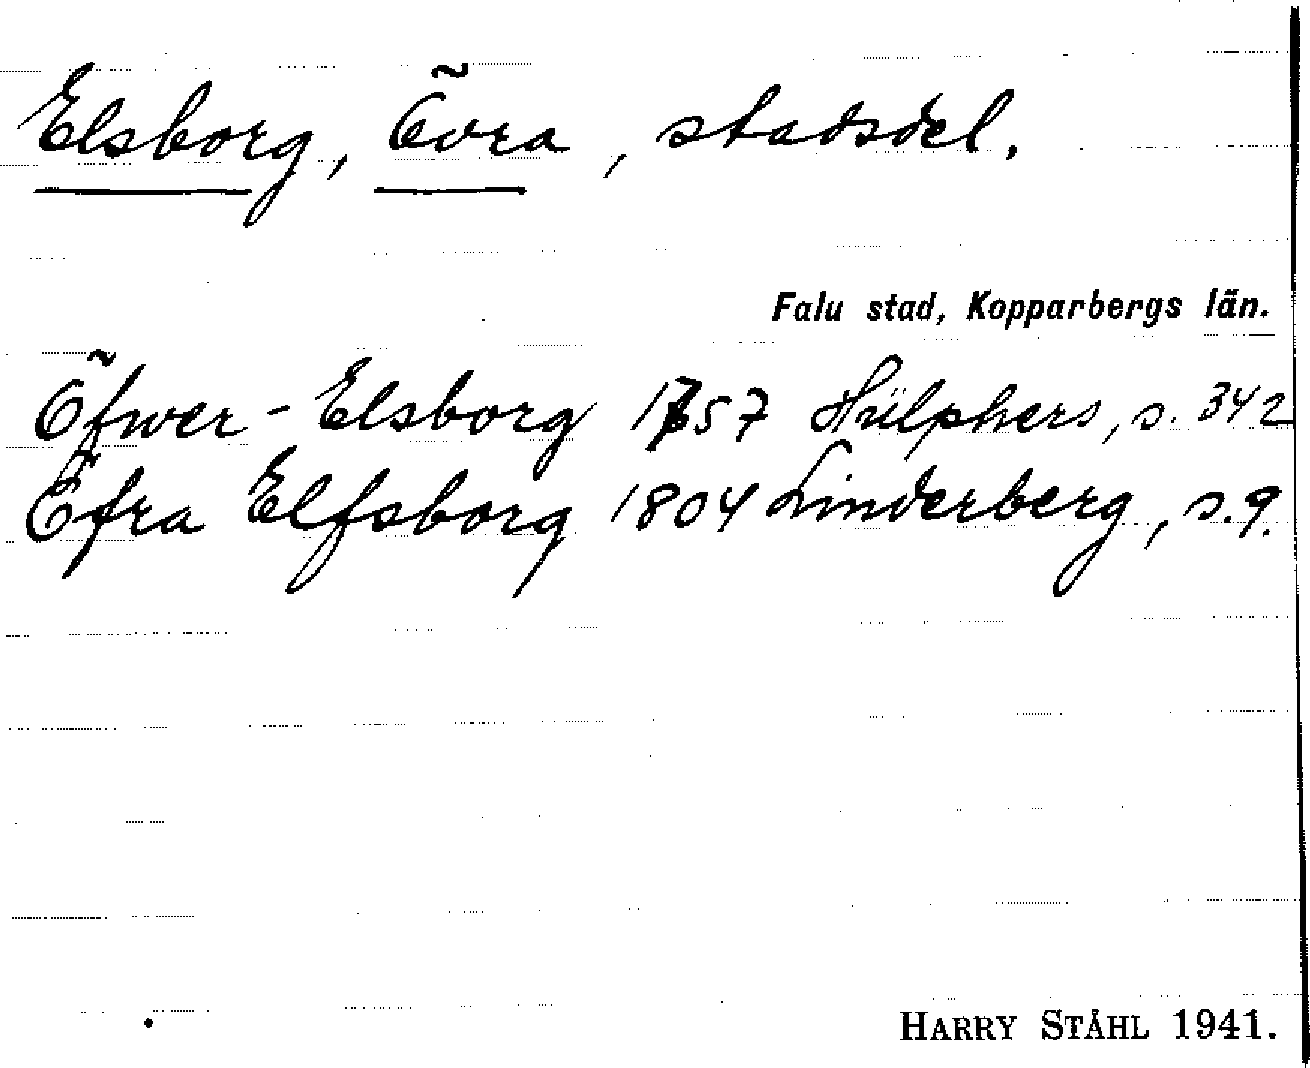 Elsborg, Övra, stadsdel.
Falu stad, Kopparbergs län.
Öfwer-Elsborg 1757 Hülphers, s. 342
Öfra Elfsborg 1804 Linderberg, s. 9.
HARRY STÅHL 1941.